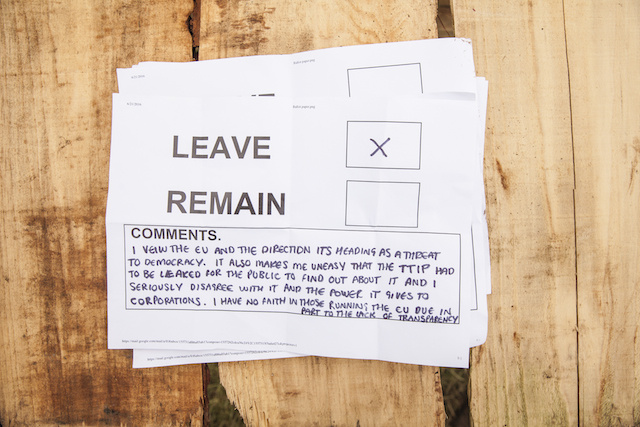 LEAVE X
REMAIN
COMMENTS.
I VEIW THE EU AND THE DIRECTION ITS HEADING AS A THREAT
TO DEMOCRACY. IT ALSO MAKES ME UNEASY THAT THE TTIP HAD
TO BE LEAKED FOR THE PUBLIC TO FIND OUT ABOUT IT AND I
SERIOUSLY DISAGREE WITH IT AND THE POWER IT GIVES TO
CORPORATIONS. I HAVE NO FAITH IN THOSE RUNNING THE EU DUE IN
PART TO THE LACK OF TRANSPARENCY